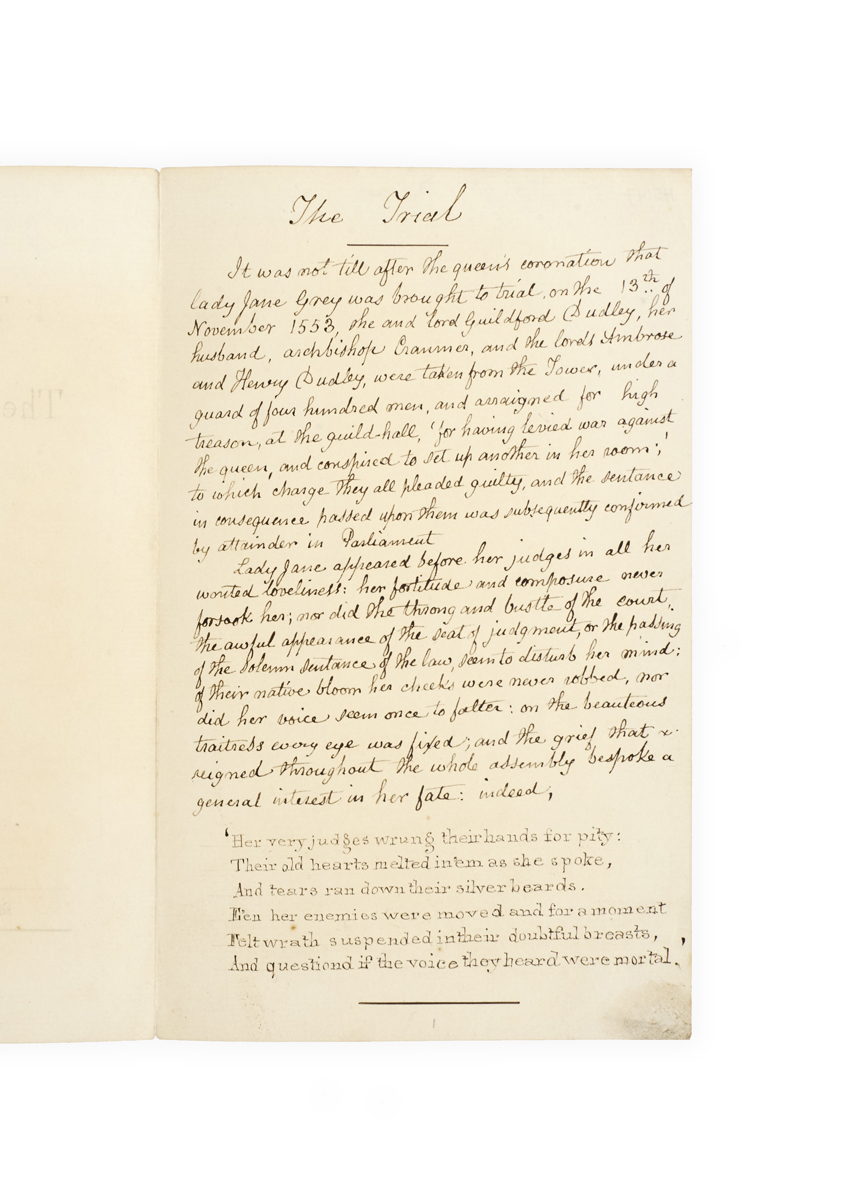 The Trial
It was not till after the queen's coronation that
lady Jane Grey was brought to trial, on the 13th of
November 1553, she and lord Guildford Dudley, her
husband, archbishop Cranmer, and the lords Ambrose
and Henry Dudley, were taken from the Tower, under a
guard of four hundred men, and arraigned for high
treason, at the guild-hall, 'for having levied war against
the queen, and conspired to set up another in her room;'
to which charge they all pleaded guilty, and the sentance
in consequence passed upon them was subsequently confirmed
by attainder in Parliament
Lady Jane appeared before her judges in all her
wonted loveliness: her fortitude and composure never
forsook her; nor did the throng and bustle of the court,
the awful appearance of the seat of judgment, or the passing
of the solemn sentance of the law, seem to disturb her mind:
of their native bloom her cheeks were never robbed, nor
did her voice seem once to falter: on the beauteous
traitress every eye was fixed; and the grief that
reigned throughout the whole assembly bespoke a
general interest in her fate: indeed,
'Her very judges wrung their hands for pity:
Their old hearts melted in'em as she spoke,
And tears ran down their silver beards.
E'en her enemies were moved and for a moment
Felt wrath suspended in their doubtful breasts,
And questiond if the voice they heard were mortal.'
The